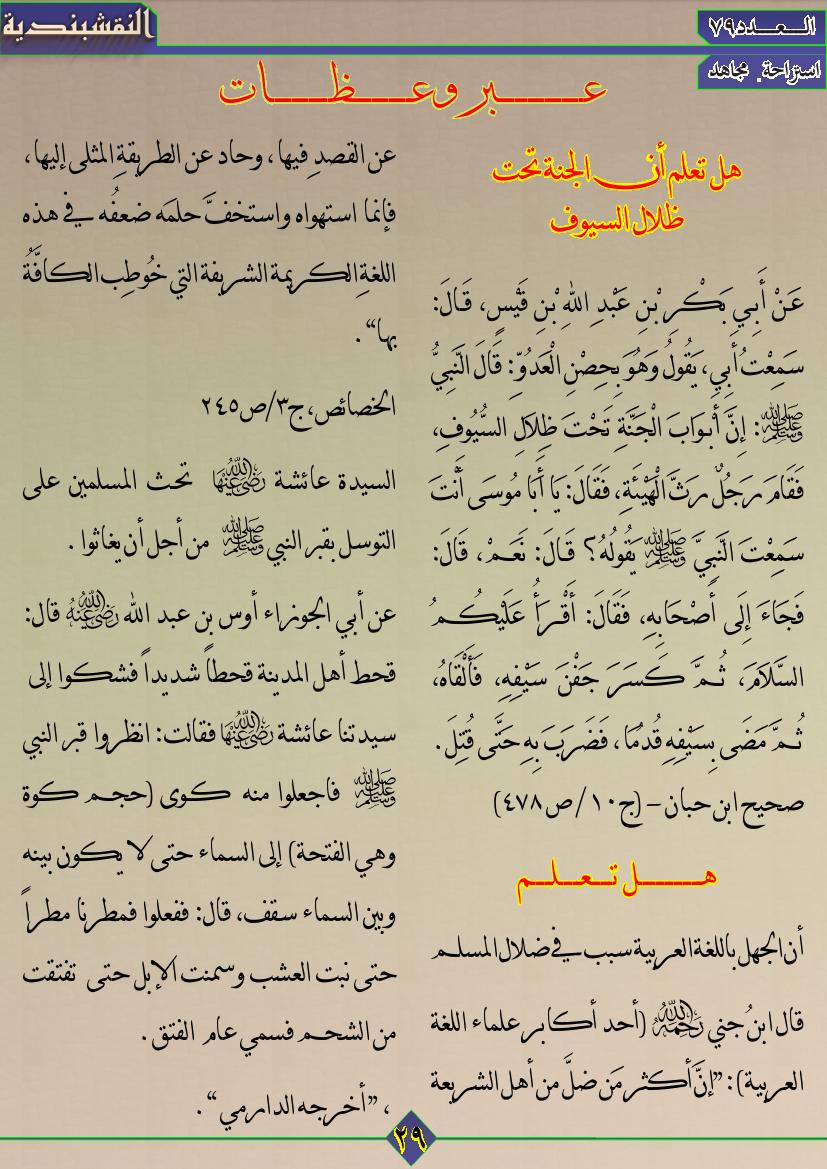 النقشبندية
العدد ٧٩
استراحة. مجاهد
عبر وعظات
هل تعلم أن الجنة تحت
ظلال السيوف
عَنْ أَبِي بَكْرِ بْنِ عَبْدِ اللهِ بْنِ قَيْسٍ، قَالَ:
سَمِعْتُ أَبِي، يَقُولُ وَهُوَ بِحِصْنِ الْعَدُوِّ: قَالَ النَّبِيُّ
ﷺ: إِنَّ أَبْوَابَ الْجَنَّةِ تَحْتَ ظِلَالِ السُّيُوفِ،
فَقَامَ رَجُلٌ رَثُّ الْهَيْئَةِ، فَقَالَ: يَا أَبَا مُوسَى أَنْتَ
سَمِعْتَ النَّبِيَّ ﷺ يَقُولُهُ؟ قَالَ: نَعَمْ، قَالَ:
فَجَاءَ إِلَى أَصْحَابِهِ، فَقَالَ: أَقْرَأُ عَلَيْكُمُ
السَّلَامَ، ثُمَّ كَسَرَ جَفْنَ سَيْفِهِ، فَأَلْقَاهُ،
ثُمَّ مَضَى بِسَيْفِهِ قُدُمًا، فَضَرَبَ بِهِ حَتَّى قُتِلَ.
صحيح ابن حبان – (ج١٠ / ص٤٧٨)
هل تعلم
أن الجهل باللغة العربية سبب في ضلال المسلم
قال ابنُ جني رحمه الله (أحد أكابر علماء اللغة
العربية): ”إنَّ أكثر مَن ضلَّ من أهل الشريعة
عن القصدِ فيها، وحاد عن الطريقةِ المثلى إليها،
فإنما استهواه واستخفَّ حلمَه ضعفُه في هذه
اللغةِ الكريمة الشريفة التي خُوطِب الكافَّةُ
بها“.
الخصائص، ج٣/ص٢٤٥
السيدة عائشة رضي الله عنها تحث المسلمين على
التوسل بقبر النبي ﷺ من أجل أن يغاثوا.
عن أبي الجوزاء أوس بن عبد الله رضي الله عنه قال:
قحط أهل المدينة قحطاً شديداً فشكوا إلى
سيدتنا عائشة رضي الله عنها فقالت: انظروا قبر النبي
ﷺ فاجعلوا منه كوى (حجم كوة
وهي الفتحة) إلى السماء حتى لا يكون بينه
وبين السماء سقف، قال: ففعلوا فمطرنا مطراً
حتى نبت العشب وسمنت الإبل حتى تفتقت
من الشحم فسمي عام الفتق.
، ”أخرجه الدارمي“.
٢٩